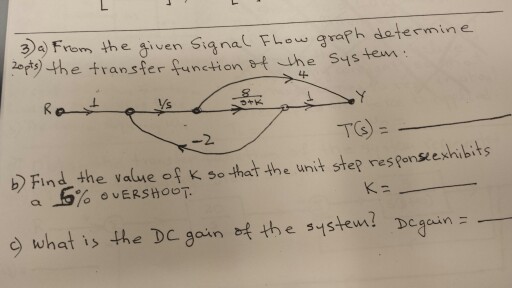 3) a) From the given Signal Flow graph determine
20pts) the transfer function of the System:
4
R 1 1/s 8/s+K 1 Y
-2
T(s) =
b) Find the value of K so that the unit step response exhibits
a 5% OVERSHOOT.
K =
c) what is the DC gain of the system? DC gain =